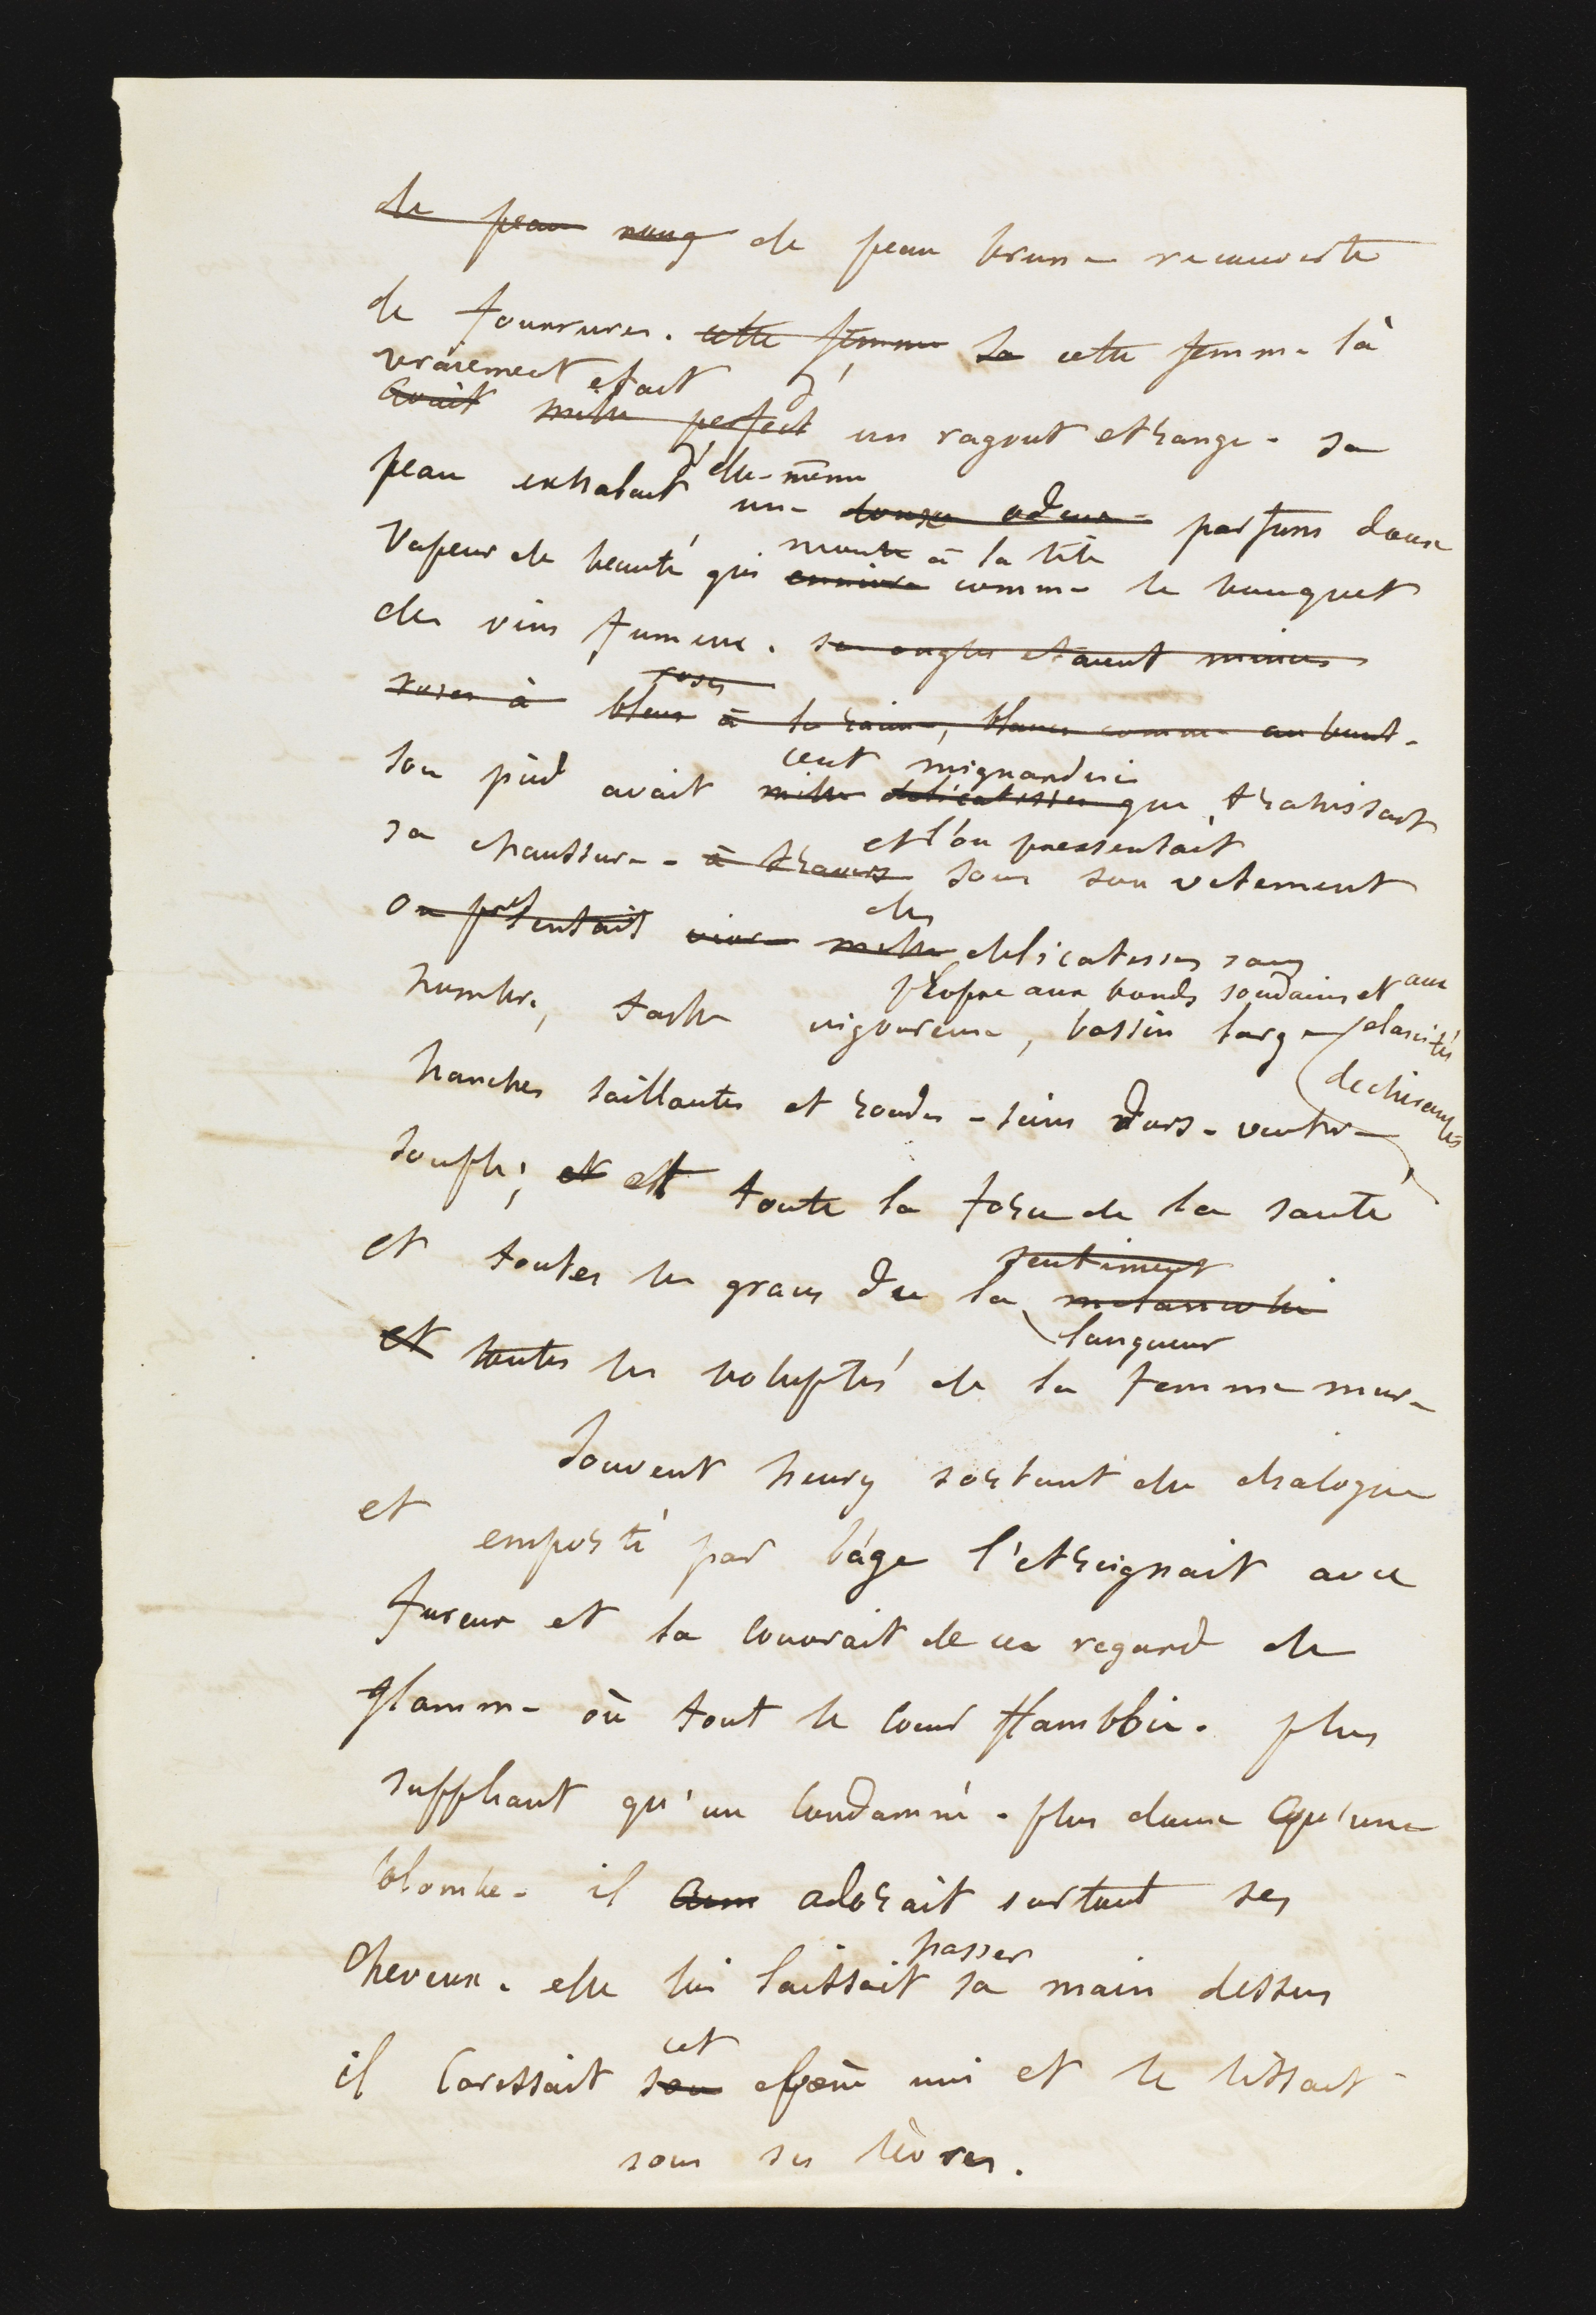 de peau roug de peau brune recouverte
de fourrures. cette femme sa cette femme là
vraiement etait d'
avait mille perfect un ragout etrange. sa
d'elle-même
peau exhalait une douce odeur parfum doux
monte à la tête
vapeur de beauté qui ennivre comme le bouquet
des vins fumeux. ses ongles etaient minces
roses
roses à bleus à la racine, blancs comme au bout.
cent mignardises
son pied avait mille delicatesses que trahissait
et l'on pressentait
sa chaussure. à travers sous son vetement
des
on présentait vivre mille delicatesses sans
propre aux bonds soudains et aux
nombre, taille vigoureuse, bassin large elasticités
dechirantes
hanches saillantes et rondes - seins durs - ventre
souple; et ett toute la force de la santé
sentiment
et toutes les graces du la melancolie
langueur
et toutes les voluptés de la femme mure
Souvent henry sortant du dialogue
et emporté par l'âge l'etreignait avec
fureur et la couvrait de ce regard de
flamme où tout le coeur flamboie. plus
suppliant qu'un condamné. plus doux qu'une
colombe. il aim adorait surtout ses
passer
cheveux. elle lui laissait sa main dessus
cet
il caressait son ebène uni et le lissait
sous ses lèvres.